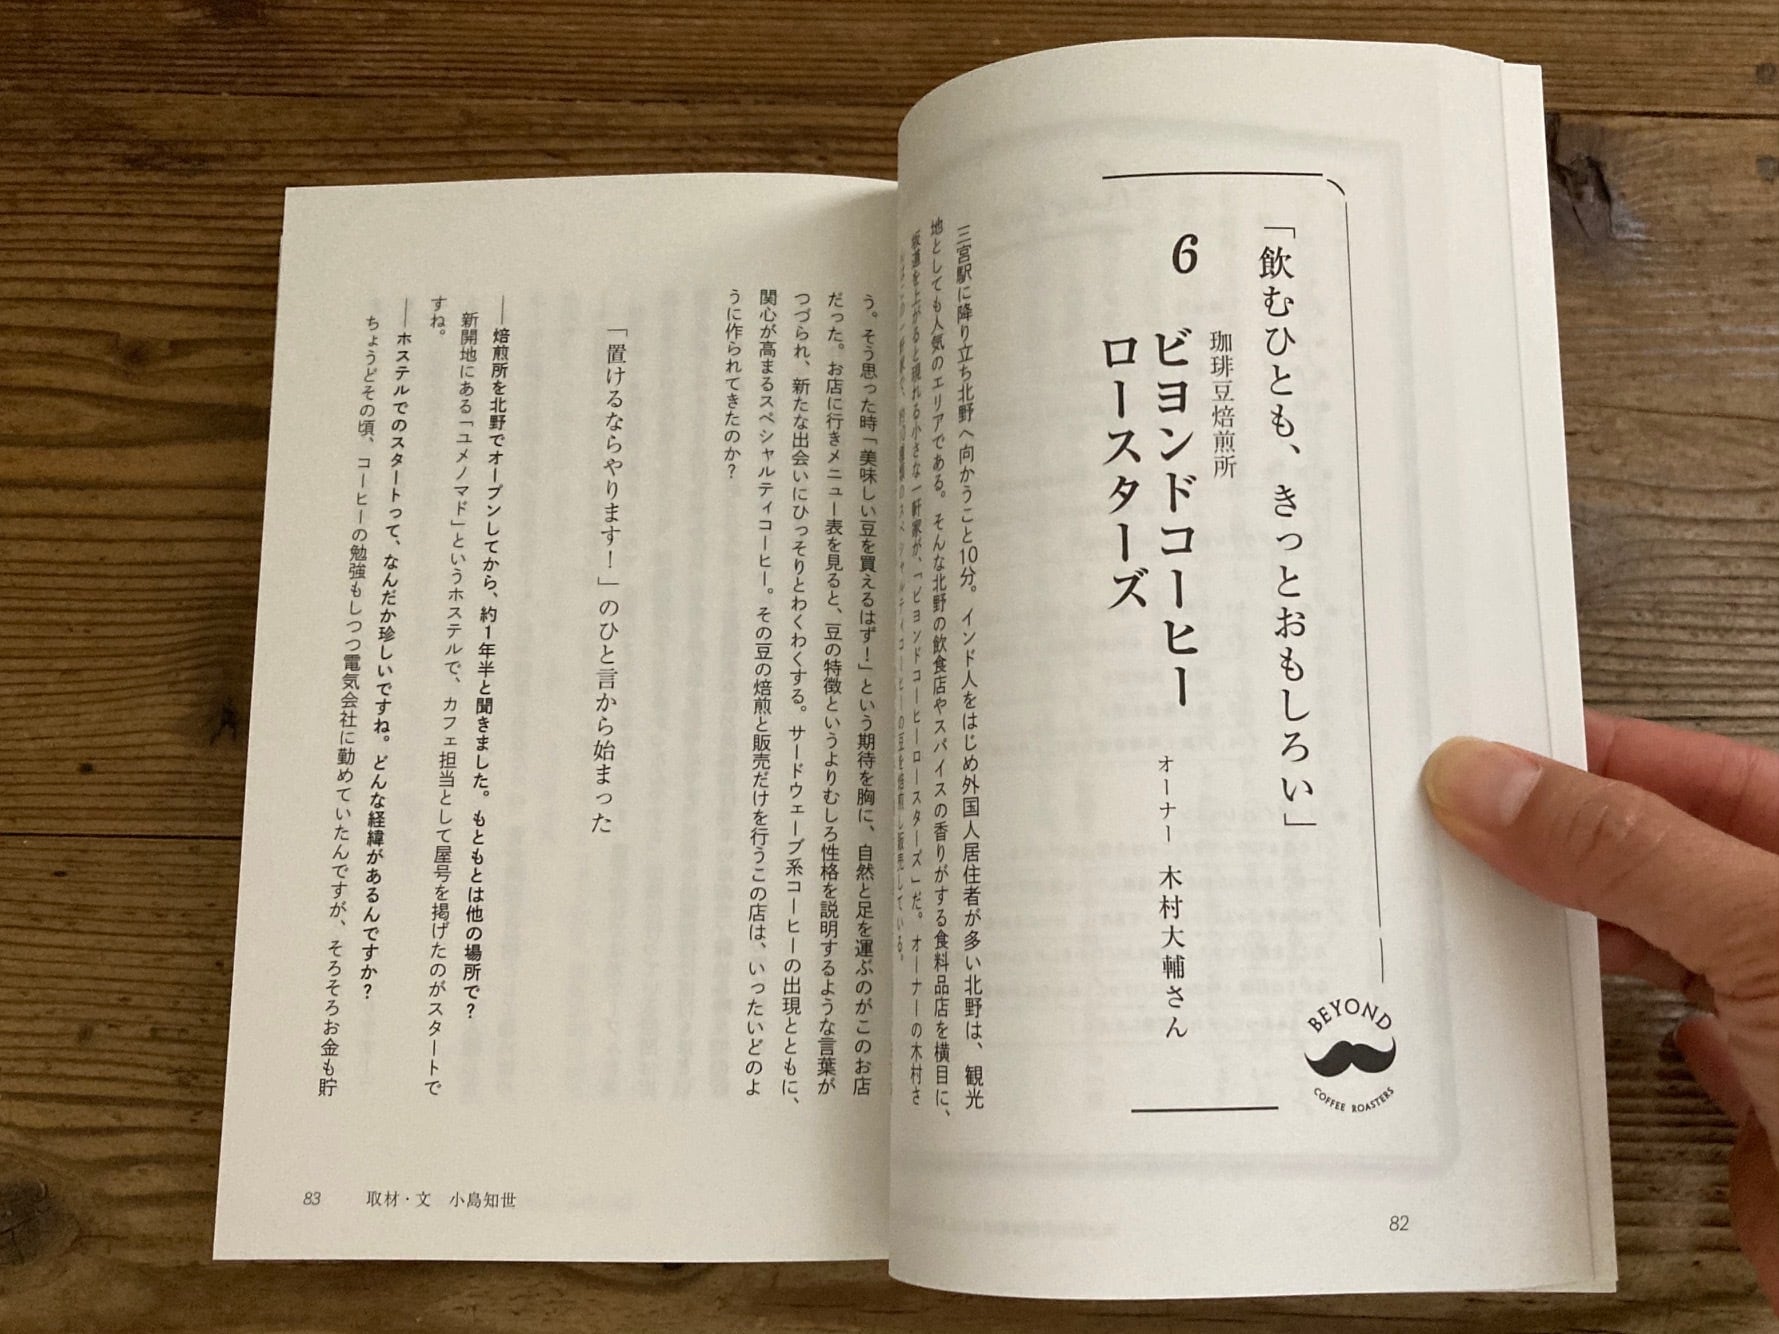 「飲むひとも、きっとおもしろい」
6
珈琲豆焙煎所
ビヨンドコーヒー
ロースターズ
オーナー 木村大輔さん
BEYOND
COFFEE ROASTERS
三宮駅に降り立ち北野へ向かうこと10分。インド人をはじめ外国人居住者が多い北野は、観光
地としても人気のエリアである。そんな北野の飲食店やスパイスの香りがする食料品店を横目に、
坂道を上がると現れる小さな一軒家が、「ビヨンドコーヒーロースターズ」だ。オーナーの木村さ
スペシャルティコーヒーの豆を焙煎し販売している。
82
う。そう思った時「美味しい豆を買えるはず！」という期待を胸に、自然と足を運ぶのがこのお店
だった。お店に行きメニュー表を見ると、豆の特徴というよりむしろ性格を説明するような言葉が
つづられ、新たな出会いにひっそりとわくわくする。サードウェーブ系コーヒーの出現とともに、
関心が高まるスペシャルティコーヒー。その豆の焙煎と販売だけを行うこの店は、いったいどのよ
うに作られてきたのか？
「置けるならやります！」のひと言から始まった
――焙煎所を北野でオープンしてから、約1年半と聞きました。もともとは他の場所で？
新開地にある「ユメノマド」というホステルで、カフェ担当として屋号を掲げたのがスタートで
すね。
――ホステルでのスタートって、なんだか珍しいですね。どんな経緯があるんですか？
ちょうどその頃、コーヒーの勉強もしつつ電気会社に勤めていたんですが、そろそろお金も貯
83 取材・文 小島知世